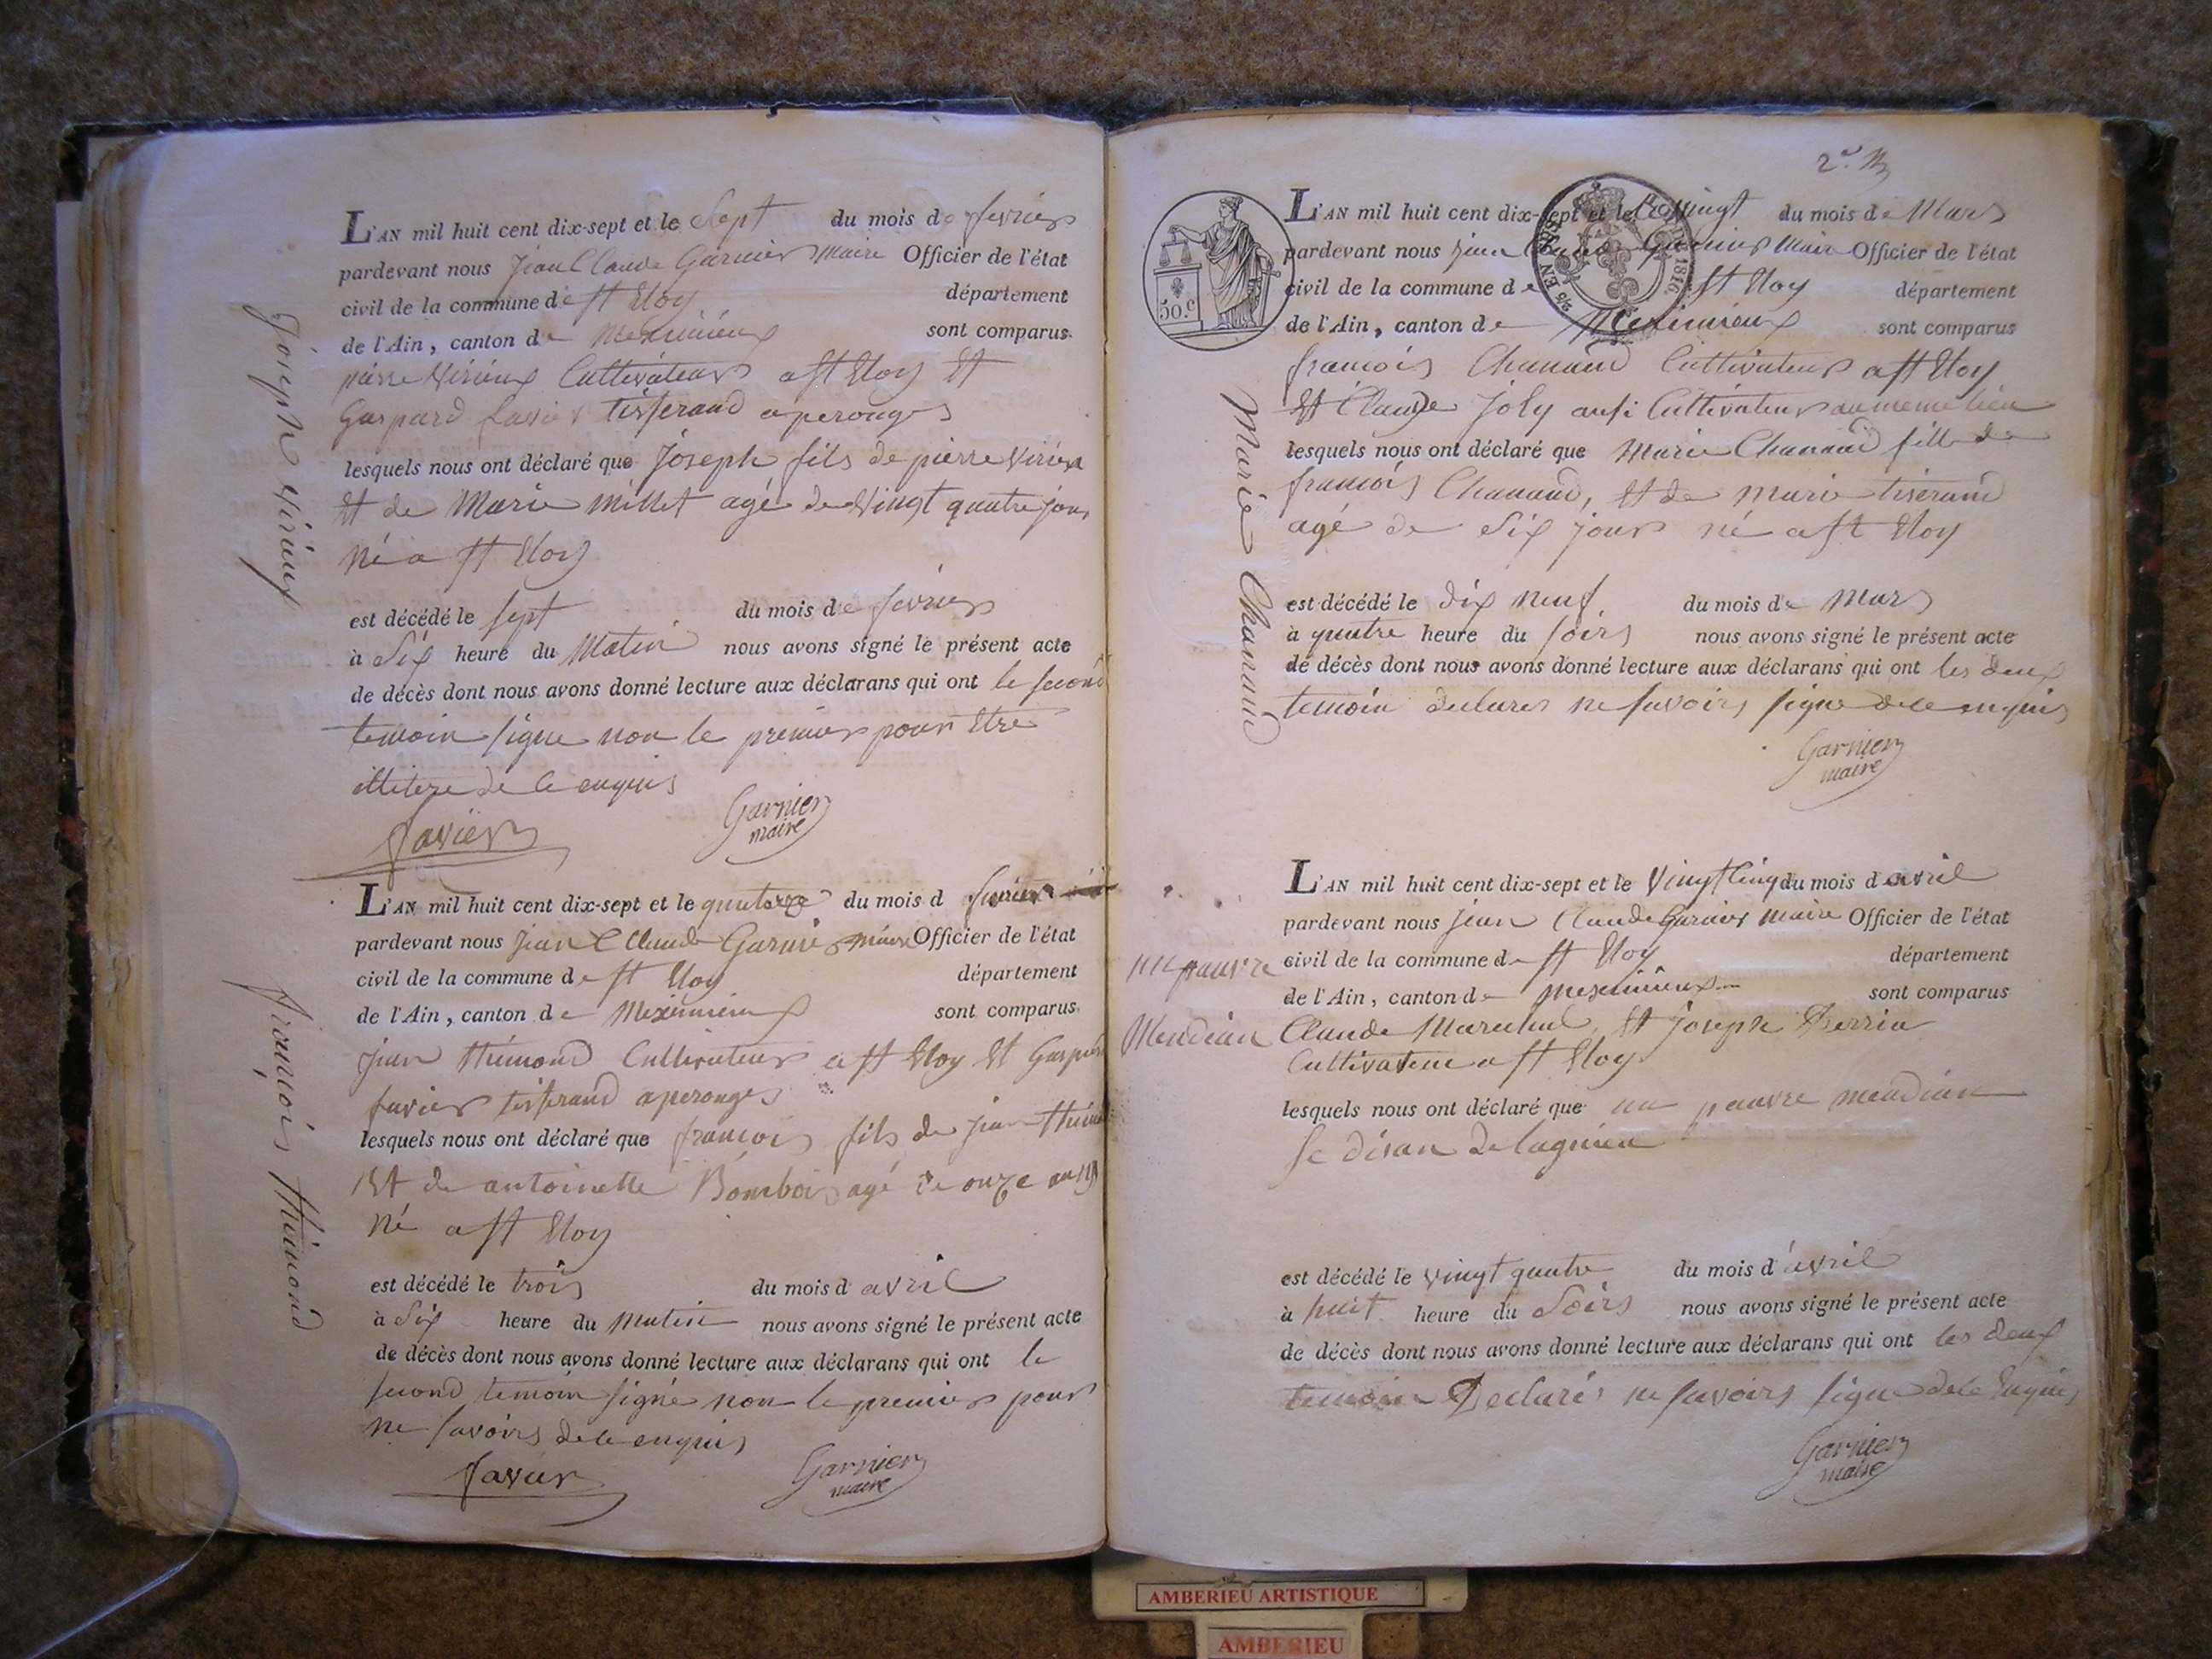 Joseph Virieux
L'AN mil huit cent dix-sept et le Sept du mois de fevrier
pardevant nous Jean Claude Garnier Maire Officier de l'état
civil de la commune de St Eloy département
de l'Ain, canton de Meximieux sont comparus
pierre Virieux Cultivateur a St Eloy Et
Gaspard favier tisserand a perouges
lesquels nous ont déclaré que Joseph fils de pierre Virieux
Et de Marie Millet agé de Vingt quatre jour
Né a St Eloy
est décédé le sept du mois de fevrier
à Six heure du Matin nous avons signé le présent acte
de décès dont nous avons donné lecture aux déclarans qui ont le second
temoin signe non le premier pour Etre
illitere de ce enquis
favier
Garnier
maire
françois thimond
L'AN mil huit cent dix-sept et le quatorze du mois d
pardevant nous Jean Claude Garnier maire Officier de l'état
civil de la commune de St Eloy département
de l'Ain, canton de Meximieux sont comparus
Jean thimond Cultivateur a St Eloy Et Gaspard
favier tisserand a perouges
lesquels nous ont déclaré que françois fils de jean thimond
Et de antoinette Bombois agé de onze
né a St Eloy
est décédé le trois du mois d'avril
à Six heure du Matin nous avons signé le présent acte
de décès dont nous avons donné lecture aux déclarans qui ont le
second temoin signé non le premier pour
ne savoirs de ce enquis
favier
Garnier
maire
50 c
1816
Marie Chanaud
L'AN mil huit cent dix-sept et le Vingt du mois de Mars
pardevant nous jean Claude Garnier Maire Officier de l'état
civil de la commune de St Eloy département
de l'Ain, canton de Meximieux sont comparus
francois Chanaud Cultivateur a St Eloy
Et Claude Joly ausi Cultivateur au meme lieu
lesquels nous ont déclaré que Marie Chanaud fille de
francois Chanaud, Et de marie tiserand
agé de Six jour né a St Eloy
est décédé le dix neuf du mois de Mars
à quatre heure du soirs nous avons signé le présent acte
de décès dont nous avons donné lecture aux déclarans qui ont les deux
temoin declares ne savoirs signe de ce enquis
Garnier
maire
un pauvre
Mendian
L'AN mil huit cent dix-sept et le Vingt Cinq du mois d'avril
pardevant nous jean Claude Garnier Maire Officier de l'état
civil de la commune de St Eloy département
de l'Ain, canton de Meximieux sont comparus
Claude Marechal Et Joseph Perrin
Cultivateur a St Eloy
lesquels nous ont déclaré que un pauvre mendian
se disan de lagnieu
est décédé le vingt quatre du mois d'avril
à huit heure du Soirs nous avons signé le présent acte
de décès dont nous avons donné lecture aux déclarans qui ont les deux
temoin Declarés ne savoirs signe de ce Enquis
Garnier
maire
AMBERIEU ARTISTIQUE
AMBERIEU